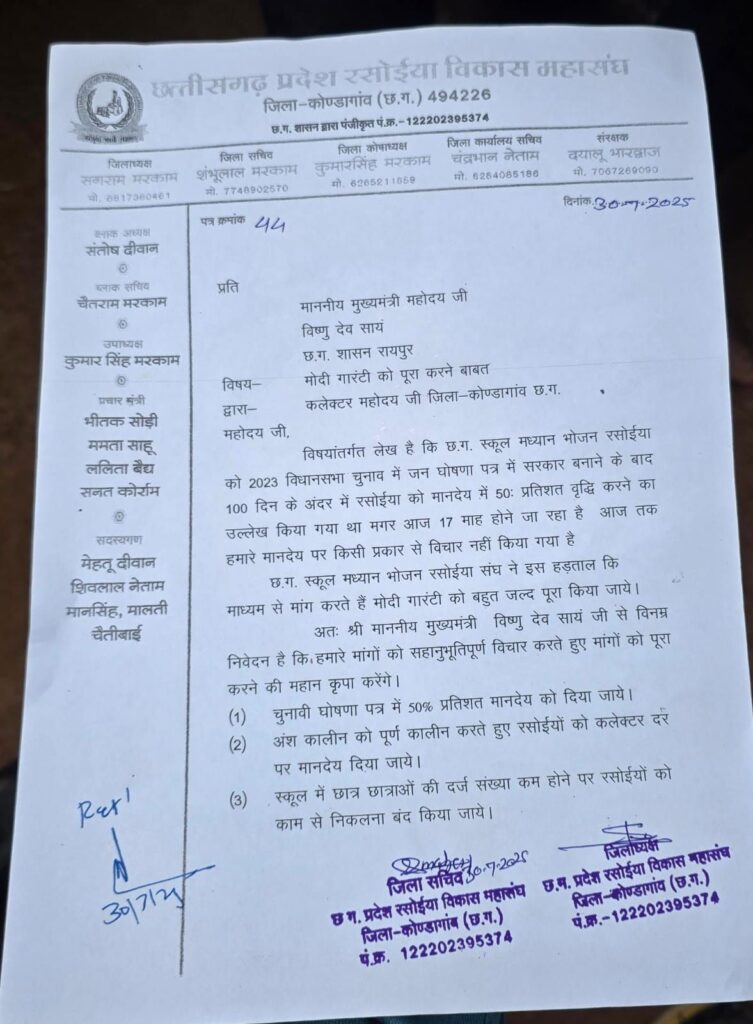 छत्तीसगढ़ प्रदेश रसोईया विकास महासंघ
जिला-कोण्डागांव (छ.ग.) 494226
छ.ग. शासन द्वारा पंजीकृत पं.क्र.-122202395374
जिलाध्यक्ष
सगराम मरकाम
मो.
जिला सचिव
शंभूलाल मरकाम
मो. 7746902570
जिला कोषाध्यक्ष
कुमारसिंह मरकाम
मो. 6265211859
जिला कार्यालय सचिव
चंद्रभान नेताम
मो. 6264085186
संरक्षक
दयालू भारद्वाज
मो. 7067269090
पत्र क्रमांक 44
दिनांक 30-7-2025
ब्लाक अध्यक्ष
संतोष दीवान
ब्लाक सचिव
चैतराम मरकाम
उपाध्यक्ष
कुमार सिंह मरकाम
प्रचार मंत्री
भीतक सोड़ी
ममता साहू
ललिता बैद्य
सनत कोर्राम
सदस्यगण
मेहतू दीवान
शिवलाल नेताम
मानसिंह, मालती
चैतीबाई
प्रति
माननीय मुख्यमंत्री महोदय जी
विष्णु देव सायं
छ.ग. शासन रायपुर
विषय– मोदी गारंटी को पूरा करने बाबत
द्वारा– कलेक्टर महोदय जी जिला-कोण्डागांव छ.ग.
महोदय जी,
विषयांतर्गत लेख है कि छ.ग. स्कूल मध्यान भोजन रसोईया
को 2023 विधानसभा चुनाव में जन घोषणा पत्र में सरकार बनाने के बाद
100 दिन के अंदर में रसोईया को मानदेय में 50: प्रतिशत वृद्धि करने का
उल्लेख किया गया था मगर आज 17 माह होने जा रहा है आज तक
हमारे मानदेय पर किसी प्रकार से विचार नहीं किया गया है
छ.ग. स्कूल मध्यान भोजन रसोईया संघ ने इस हड़ताल कि
माध्यम से मांग करते हैं मोदी गारंटी को बहुत जल्द पूरा किया जाये।
अतः श्री माननीय मुख्यमंत्री विष्णु देव सायं जी से विनम्र
निवेदन है कि हमारे मांगों को सहानुभूतिपूर्ण विचार करते हुए मांगों को पूरा
करने की महान कृपा करेंगे।
(1) चुनावी घोषणा पत्र में 50% प्रतिशत मानदेय को दिया जाये।
(2) अंश कालीन को पूर्ण कालीन करते हुए रसोईयों को कलेक्टर दर
पर मानदेय दिया जाये।
(3) स्कूल में छात्र छात्राओं की दर्ज संख्या कम होने पर रसोईयों को
काम से निकलना बंद किया जाये।
30/7/25
30-7-2025
जिला सचिव
छ.ग. प्रदेश रसोईया विकास महासंघ
जिला-कोण्डागांव (छ.ग.)
पं.क्र. 122202395374
जिलाध्यक्ष
छ.ग. प्रदेश रसोईया विकास महासंघ
जिला-कोण्डागांव (छ.ग.)
पं.क्र.-122202395374